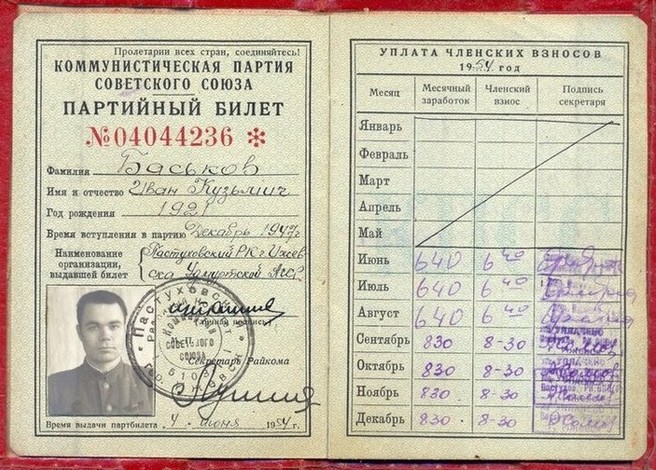 Пролетарии всех стран, соединяйтесь!
КОММУНИСТИЧЕСКАЯ ПАРТИЯ
СОВЕТСКОГО СОЮЗА
ПАРТИЙНЫЙ БИЛЕТ
№04044236 *
Фамилия Баськов
Имя и отчество Иван Кузьмич
Год рождения 1921
Время вступления в партию Декабрь 1947г
Наименование организации, выдавшей билет Пастуховский РК г. Ижев
ска Удмуртской АССР.
(Личная подпись)
Секретарь Райкома
Время выдачи партбилета 4 июня 1954г.
УПЛАТА ЧЛЕНСКИХ ВЗНОСОВ
1954 год
Месяц Месячный заработок Членский взнос Подпись секретаря
Январь
Февраль
Март
Апрель
Май
Июнь 640 6 40
Июль 640 6 40
Август 640 6 40
Сентябрь 830 8-30
Октябрь 830 8-30
Ноябрь 830 8-30
Декабрь 830 8-30